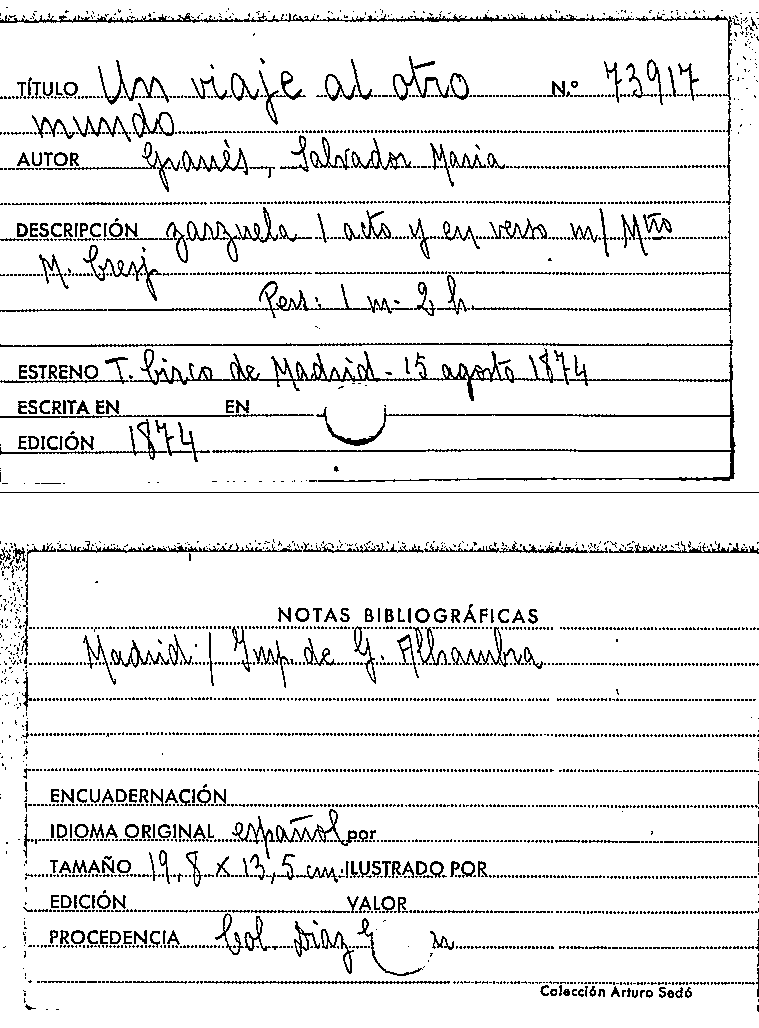 TÍTULO Un viaje al otro N.º 73917
mundo
AUTOR Granés, Salvador Maria
DESCRIPCIÓN zarzuela 1 acto y en verso m/ Mtro
M.
Pers: 1 m - 2 h.
ESTRENO T. Circo de Madrid - 15 agosto 1874
ESCRITA EN EN
EDICIÓN 1874
NOTAS BIBLIOGRÁFICAS
Madrid / Imp. de G. Alhambra
ENCUADERNACIÓN
IDIOMA ORIGINAL español por
TAMAÑO 19,8 x 13,5 cm. ILUSTRADO POR
EDICIÓN VALOR
PROCEDENCIA Col. Diaz
Colección Arturo Sedó